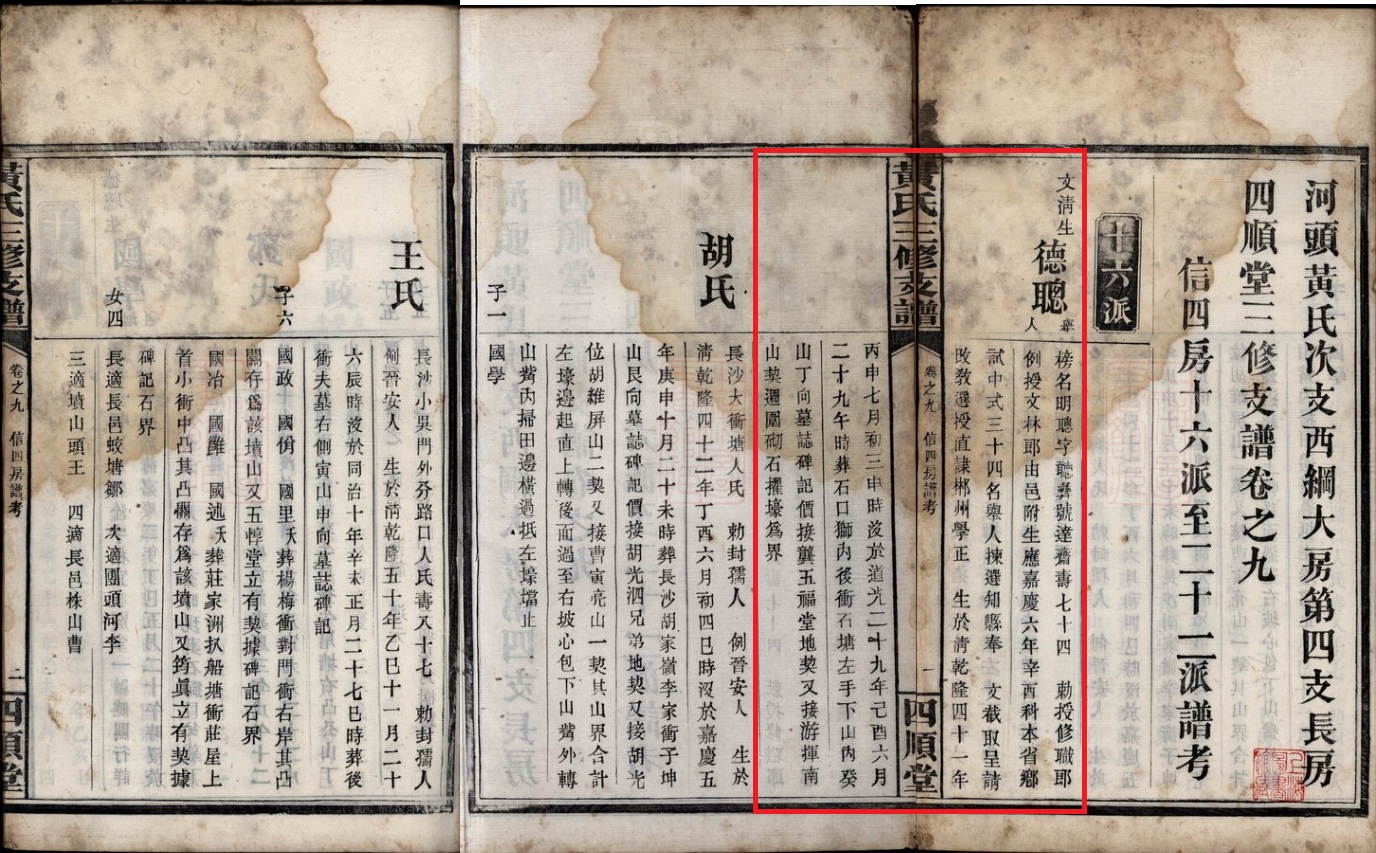 河頭黃氏次支西綱大房第四支長房
四順堂三修支譜卷之九
信四房十六派至二十二派譜考
十六派
文淸生
德聰
舉人
榜名明聰字聽彝號達齋壽七十四　勅授修職郎
例授文林郎由邑附生應嘉慶六年辛酉科本省鄉
試中式三十四名舉人揀選知縣奉　文截取呈請
改敎選授直隷郴州學正　生於淸乾隆四十一年
黃氏三修支譜
卷之九　信四房譜考
一
四順堂
丙申七月初三申時歿於道光二十九年己酉六月
二十九午時葬石口獅內後衝石塘左手下山內癸
山丁向墓誌碑記價接龔五福堂地契又接游揮南
山契週圍砌石擢壕爲界
胡氏
長沙大衝塘人氏　勅封孺人　例晉安人　生於
淸乾隆四十二年丁酉六月初四巳時歿於嘉慶五
年庚申十月二十未時葬長沙胡家嶺李家衝子坤
山艮向墓誌碑記價接胡光泗兄弟地契又接胡光
位胡維屏山二契又接曹寅亮山一契其山界合計
左壕邊起直上轉後面過至右坡心包下山觜外轉
山觜內掃田邊橫過抵左壕壋止
子一
國學
王氏
長沙小吳門外分路口人氏壽八十七　勅封孺人
例晉安人　生於淸乾隆五十年乙巳十一月二十
六辰時歿於同治十年辛未正月二十七巳時葬後
衝夫墓右側寅山申向墓誌碑記
子六
國政　國俏　國里殀葬楊梅衝對門衝右岸其凸
關存爲該墳山又五惇堂立有契據碑記石界
國冶　國雝　國述殀葬莊家洲扒船塘衝莊屋上
首小衝中凸其凸關存爲該墳山又筠眞立有契據
碑記石界
女四
長適長邑蛟塘鄒　次適團頭河李
三適墳山頭王　四適長邑株山曹
黃氏三修支譜
卷之九　信四房譜考
二
四順堂